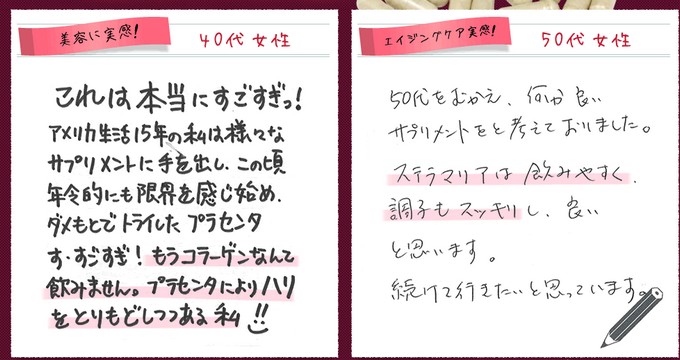 美容に実感!
40代 女性
これは本当にすごすぎっ!
アメリカ生活15年の私は様々な
サプリメントに手を出し、この頃
年令的にも限界を感じ始め、
ダメもとでトライしたプラセンタ
す・すごすぎ!もうコラーゲンなんて
飲みません。プラセンタによりハリ
をとりもどしつつある私!!
エイジングケア実感!
50代 女性
50代をむかえ、何か良い
サプリメントをと考えておりました。
ステラマリアは飲みやすく、
調子もスッキリし、良い
と思います。
続けて行きたいと思っています。